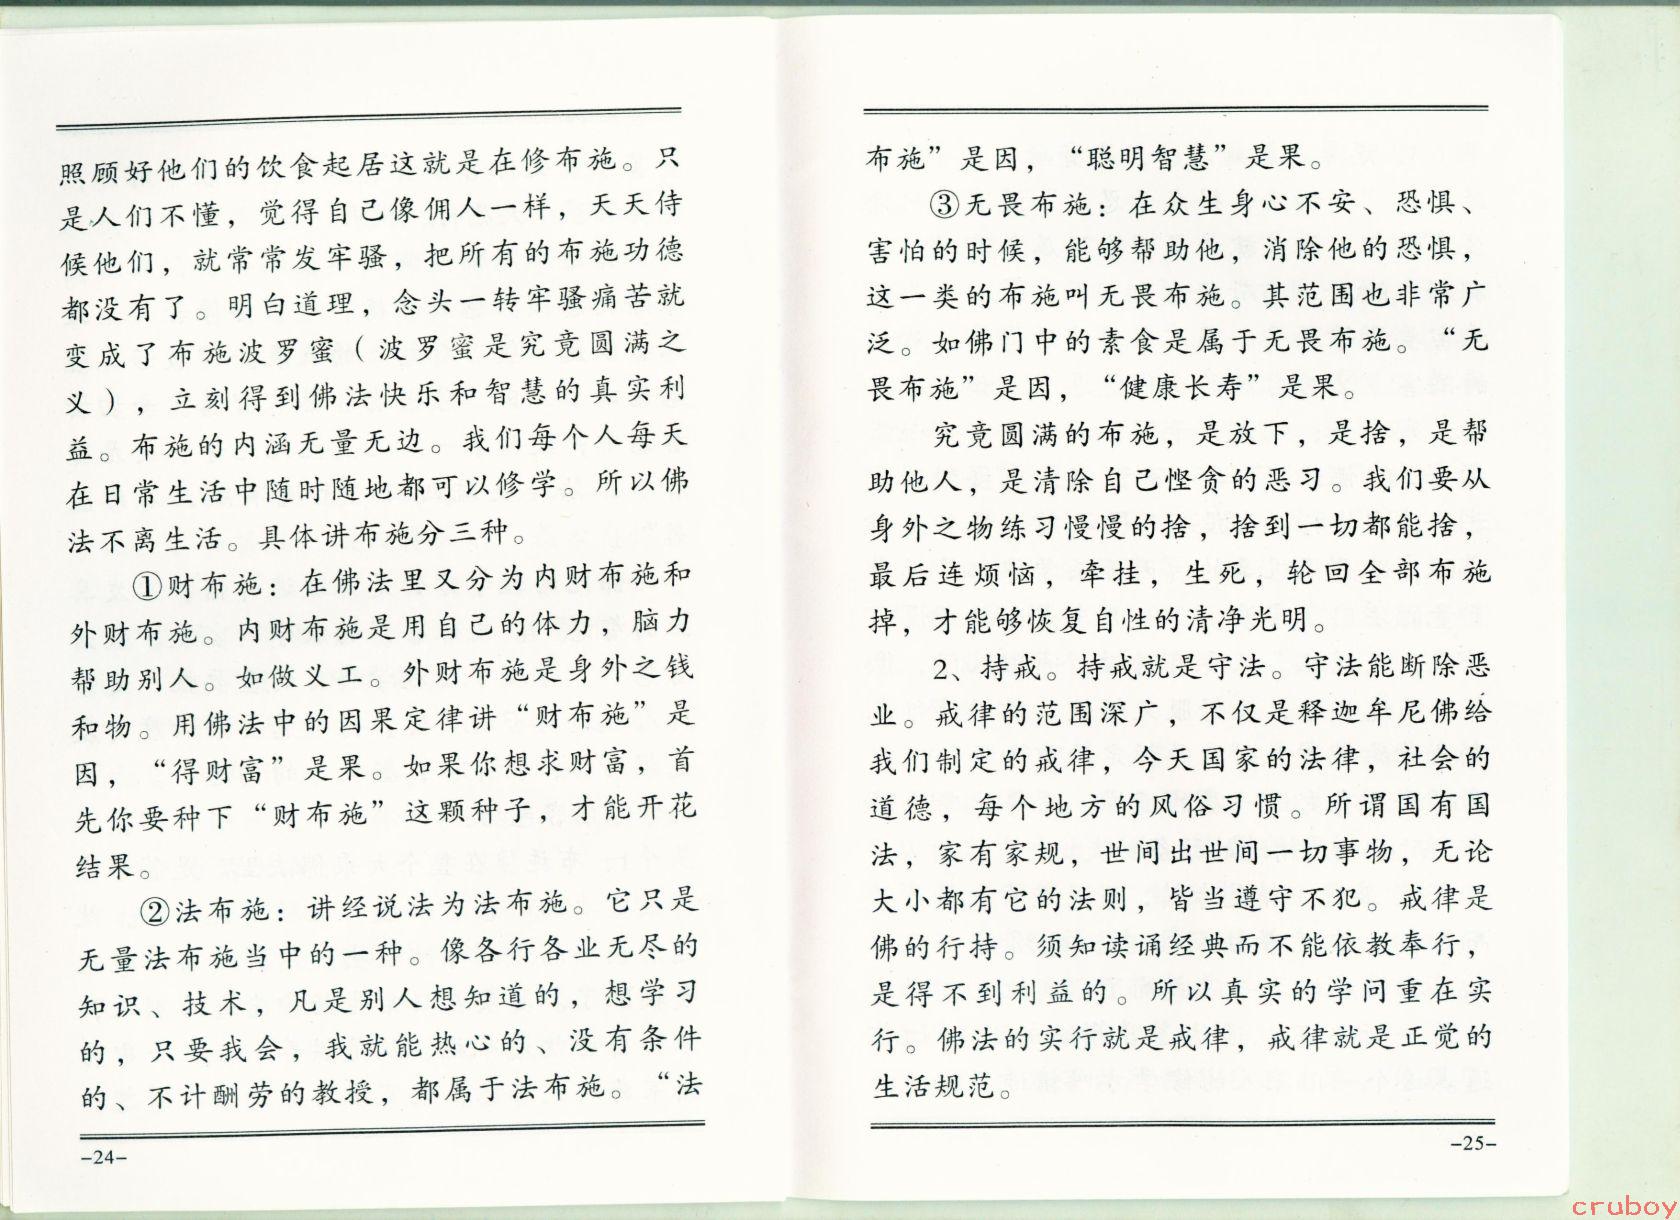 照顾好他们的饮食起居这就是在修布施。只
是人们不懂，觉得自己像佣人一样，天天侍
候他们，就常常发牢骚，把所有的布施功德
都没有了。明白道理，念头一转牢骚痛苦就
变成了布施波罗蜜（波罗蜜是究竟圆满之
义），立刻得到佛法快乐和智慧的真实利
益。布施的内涵无量无边。我们每个人每天
在日常生活中随时随地都可以修学。所以佛
法不离生活。具体讲布施分三种。
①财布施：在佛法里又分为内财布施和
外财布施。内财布施是用自己的体力，脑力
帮助别人。如做义工。外财布施是身外之钱
和物。用佛法中的因果定律讲“财布施”是
因，“得财富”是果。如果你想求财富，首
先你要种下“财布施”这颗种子，才能开花
结果。
②法布施：讲经说法为法布施。它只是
无量法布施当中的一种。像各行各业无尽的
知识、技术，凡是别人想知道的，想学习
的，只要我会，我就能热心的、没有条件
的、不计酬劳的教授，都属于法布施。“法
-24-
布施”是因，“聪明智慧”是果。
③无畏布施：在众生身心不安、恐惧、
害怕的时候，能够帮助他，消除他的恐惧，
这一类的布施叫无畏布施。其范围也非常广
泛。如佛门中的素食是属于无畏布施。“无
畏布施”是因，“健康长寿”是果。
究竟圆满的布施，是放下，是捨，是帮
助他人，是清除自己悭贪的恶习。我们要从
身外之物练习慢慢的捨，捨到一切都能捨，
最后连烦恼，牵挂，生死，轮回全部布施
掉，才能够恢复自性的清净光明。
2、持戒。持戒就是守法。守法能断除恶
业。戒律的范围深广，不仅是释迦牟尼佛给
我们制定的戒律，今天国家的法律，社会的
道德，每个地方的风俗习惯。所谓国有国
法，家有家规，世间出世间一切事物，无论
大小都有它的法则，皆当遵守不犯。戒律是
佛的行持。须知读诵经典而不能依教奉行，
是得不到利益的。所以真实的学问重在实
行。佛法的实行就是戒律，戒律就是正觉的
生活规范。
-25-
cruboy